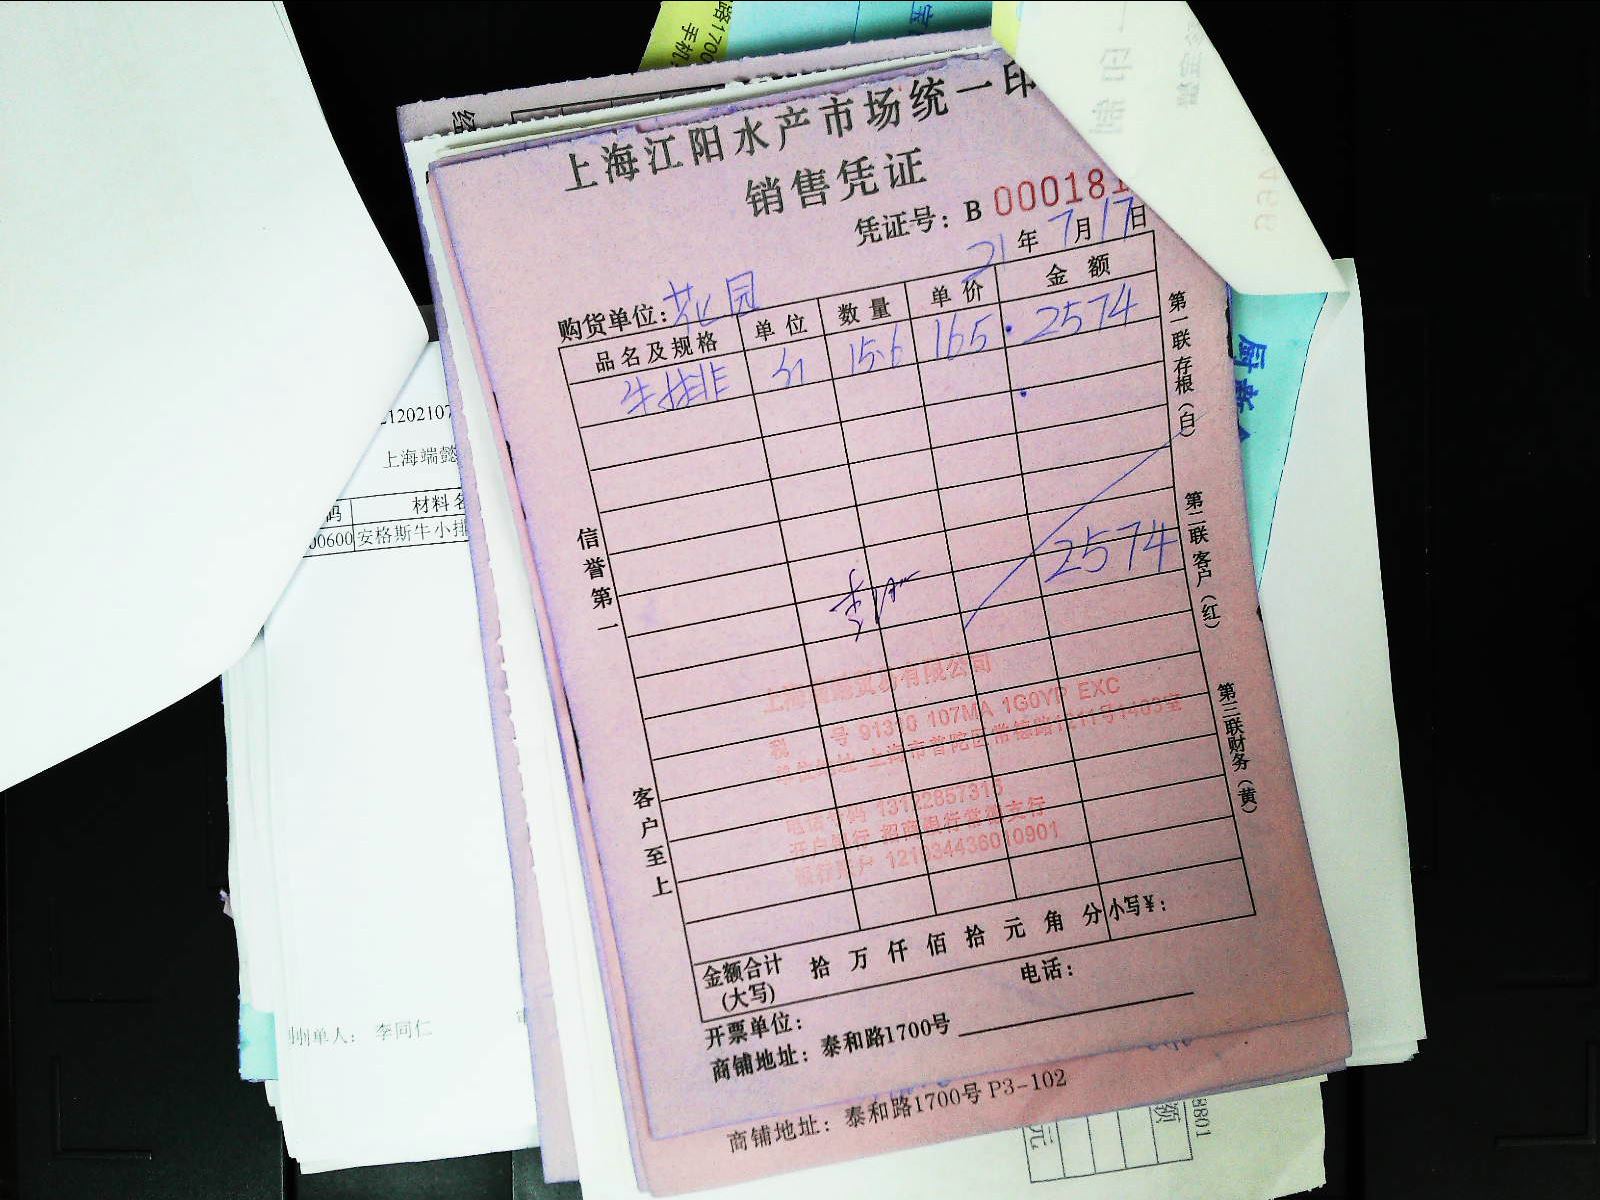 路1700
手机
上海江阳水产市场统一印
销售凭证
凭证号：B 000181
21年7月17日
购货单位：花园
品名及规格 单位 数量 单价 金额
牛排 斤 15.6 165 2574
2574
信誉第一
客户至上
第一联存根（白）
第二联客户（红）
第三联财务（黄）
上海端懿贸易有限公司
税 号 91310 107MA 1G0YP EXC
单位地址 上海市普陀区常德路1211号1403室
电话号码 13122857315
开户银行 招商银行常德支行
银行账户 121934436010901
金额合计（大写） 拾 万 仟 佰 拾 元 角 分 小写￥：
开票单位： 电话：
商铺地址：泰和路1700号
商铺地址：泰和路1700号 P3-102
21202107
上海端懿
码 材料名
00600 安格斯牛小排
制单人： 李同仁
一印制
466
厨
8801
额
元